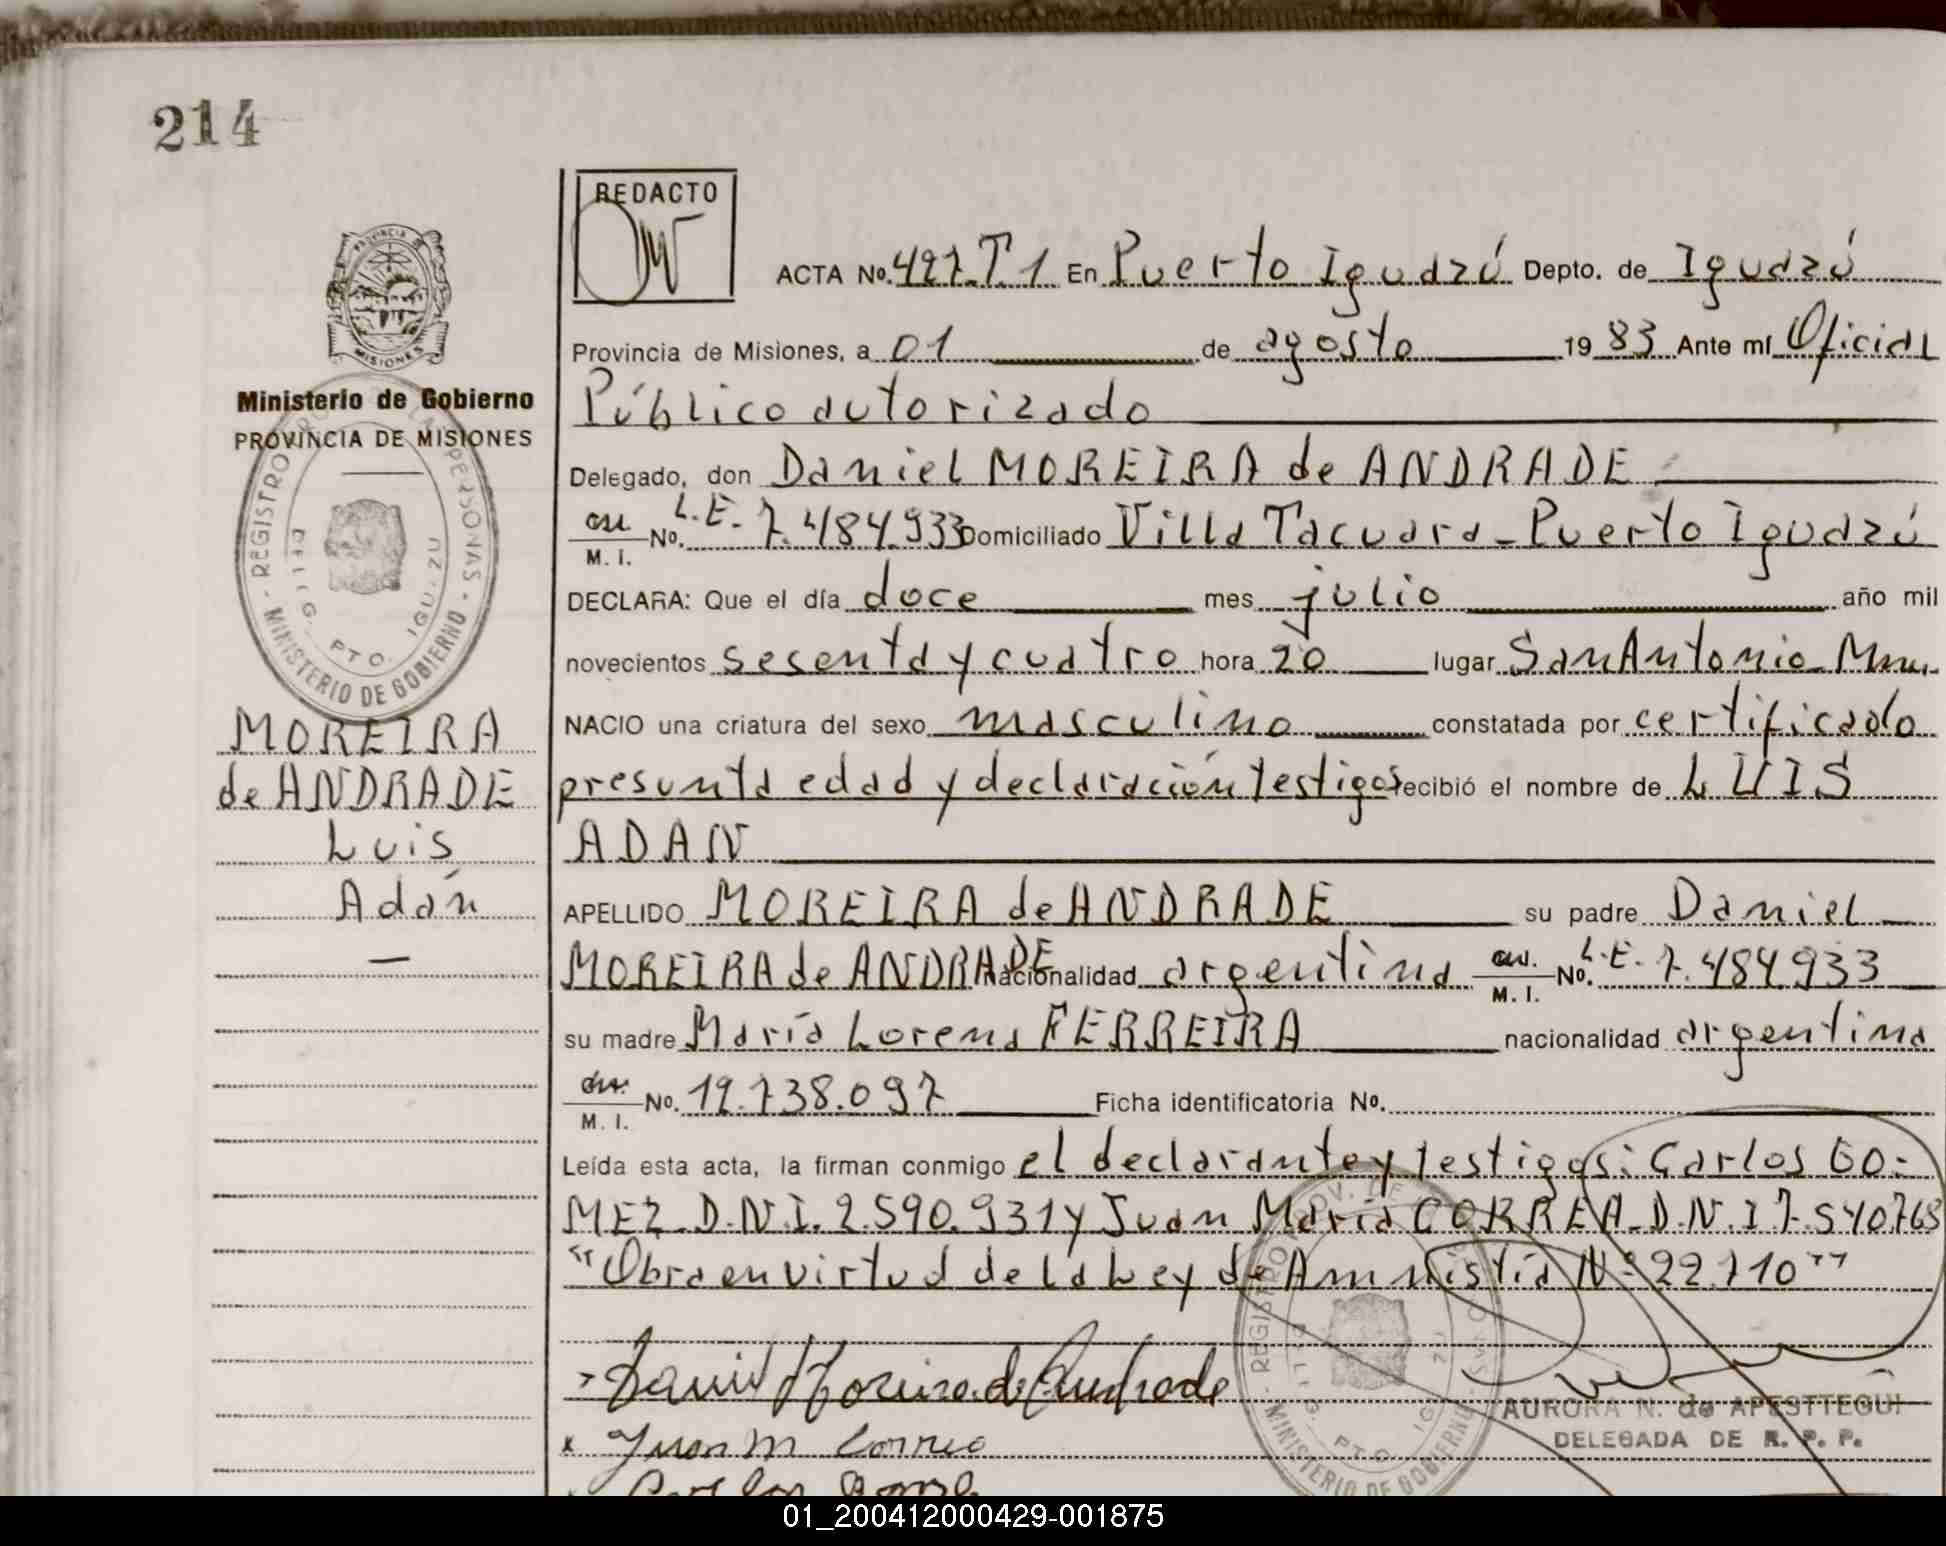 214
REDACTO
PROVINCIA DE
MISIONES
ACTA No. 427. T. 1 En Puerto Iguazú Depto. de Iguazú
Provincia de Misiones, a 01 de agosto 1983 Ante mí Oficial
Ministerio de Gobierno
Público autorizado
PROVINCIA DE MISIONES
Delegado, don Daniel MOREIRA de ANDRADE
M. I. No. L.E. 7.484.933 Domiciliado Villa Tacuara - Puerto Iguazú
DECLARA: Que el día doce mes julio año mil
novecientos sesenta y cuatro hora 20 lugar San Antonio Mnes.
REGISTRO PERSONAS
DELEG. PTO. IGUAZU
MINISTERIO DE GOBIERNO
MOREIRA
de ANDRADE
Luis
Adán
—
NACIO una criatura del sexo masculino constatada por certificado
presunta edad y declaración testigos recibió el nombre de LUIS
ADAN
APELLIDO MOREIRA de ANDRADE su padre Daniel
MOREIRA de ANDRADE nacionalidad argentina M. I. No. L.E. 7.484.933
su madre María Lorena FERREIRA nacionalidad argentina
M. I. No. 12.738.097 Ficha identificatoria No.
Leída esta acta, la firman conmigo el declarante y testigos: Carlos GO-
MEZ D.N.I. 2.590.931 y Juan María CORREA D.N.I 7.540763
"Obra en virtud de la Ley de Amnistía Nº 22.710"
Daniel Moreira de Andrade
x Juan M Correa
AURORA N. de APESTTEGUI
DELEGADA DE R. P. P.
REGISTRO PROV. DE
MINISTERIO DE GOBIERNO
01_200412000429-001875